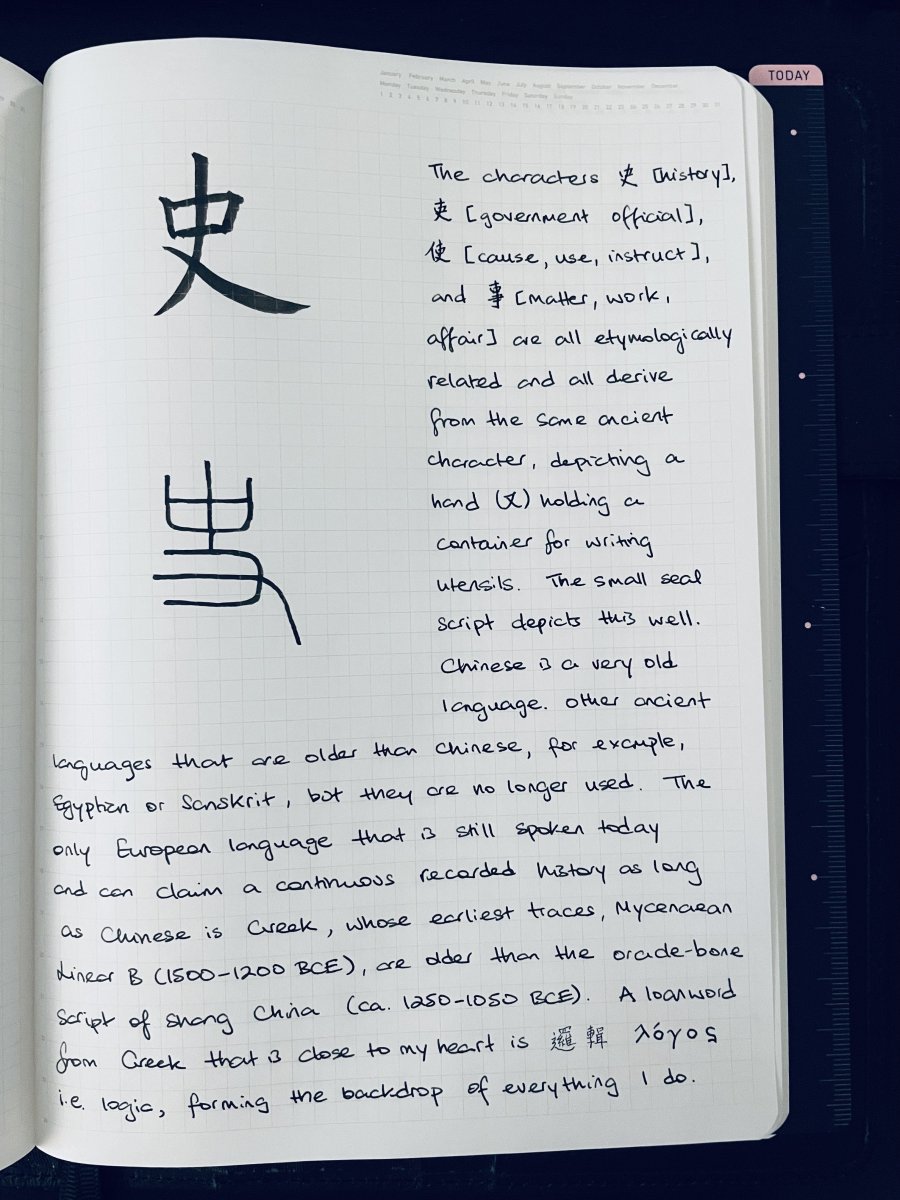 TODAY
January February March April May June July August September October November December
Monday Tuesday Wednesday Thursday Friday Saturday Sunday
1 2 3 4 5 6 7 8 9 10 11 12 13 14 15 16 17 18 19 20 21 22 23 24 25 26 27 28 29 30 31
史
The characters 史 [history],
吏 [government official],
使 [cause, use, instruct],
and 事 [matter, work,
affair] are all etymologically
related and all derive
from the same ancient
character, depicting a
hand (又) holding a
container for writing
utensils. The small seal
script depicts this well.
Chinese is a very old
language. Other ancient
languages that are older than Chinese, for example,
Egyptian or Sanskrit, but they are no longer used. The
only European language that is still spoken today
and can claim a continuous recorded history as long
as Chinese is Greek, whose earliest traces, Mycenaean
Linear B (1500-1200 BCE), are older than the oracle-bone
script of Shang China (ca. 1250-1050 BCE). A loanword
from Greek that is close to my heart is 邏輯 λόγος
i.e. logic, forming the backdrop of everything I do.